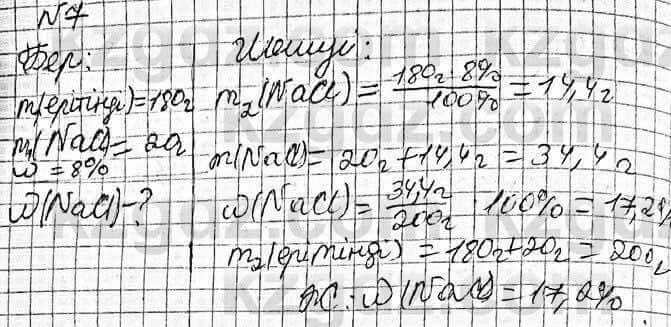 N 7
Бер:
m(ерітінді)=180г
m₁(NaCl)= 20г
ω = 8%
ω(NaCl)-?
Шешуі:
m₂(NaCl) = 180г · 8% / 100% = 14,4г
m(NaCl)= 20г+14,4г = 34,4г
ω(NaCl)= 34,4г / 200г · 100% = 17,2%
m₂(ерітінді) = 180г+20г = 200г
Ж: ω(NaCl)=17,2%